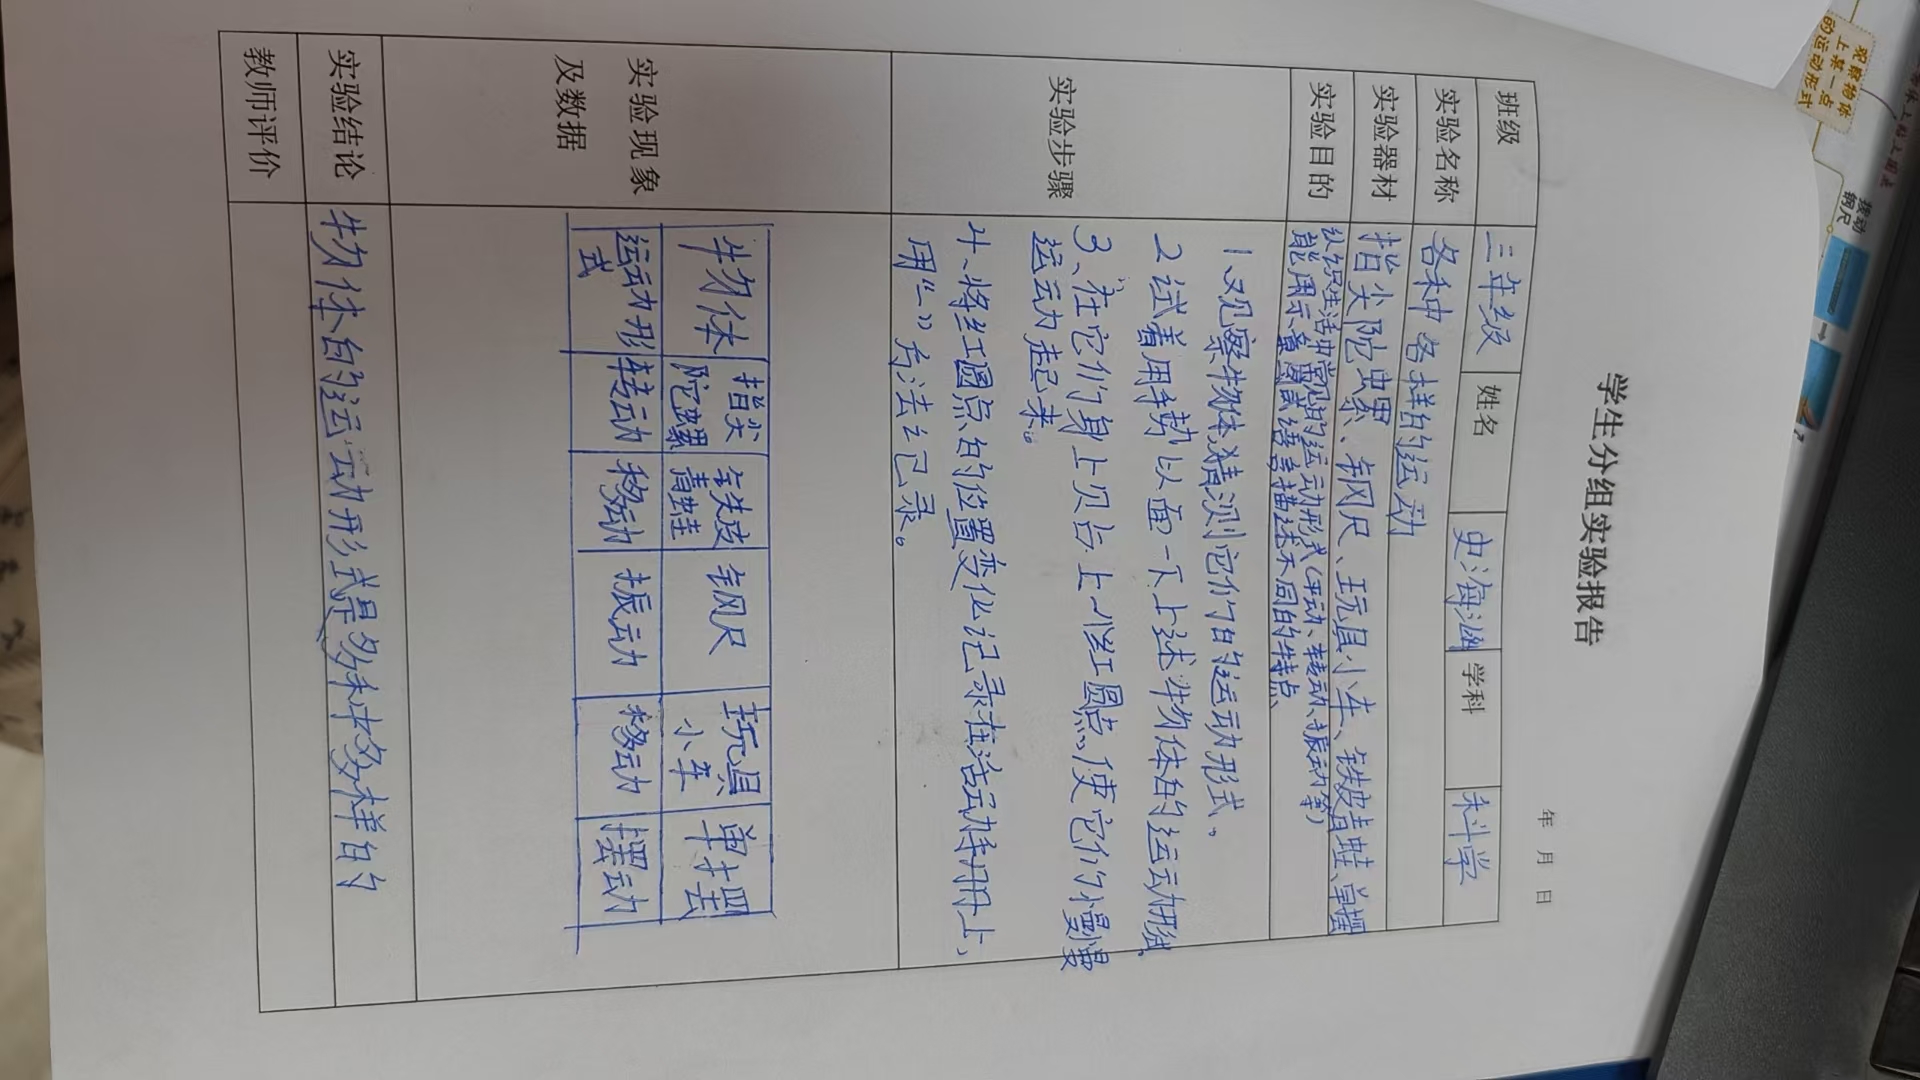 学生分组实验报告
年 月 日
班级 三年级 姓名 史海 学科 科学
实验名称 各种各样的运动
实验器材 指尖陀螺、钢尺、玩具小车、铁皮青蛙、单摆
实验目的 认识生活中常见的运动形式(平动、转动、振动等)
能用示意图或语言描述不同的特点
实验步骤
1、观察物体,猜测它们的运动形式。
2 试着用手势以画一下上述物体的运动形式
3、在它们身上贴上小红圆点,使它们慢慢
运动起来。
4、将红圆点的位置变化记录在活动手册上,
用“—”方法记录。
实验现象
及数据
物体 指尖陀螺 铁皮青蛙 钢尺 玩具小车 单摆
运动形式 转动 移动 振动 移动 摆动
实验结论 物体的运动形式是多种多样的
教师评价
观察物体
上某一点
的运动形式
拨动
钢尺